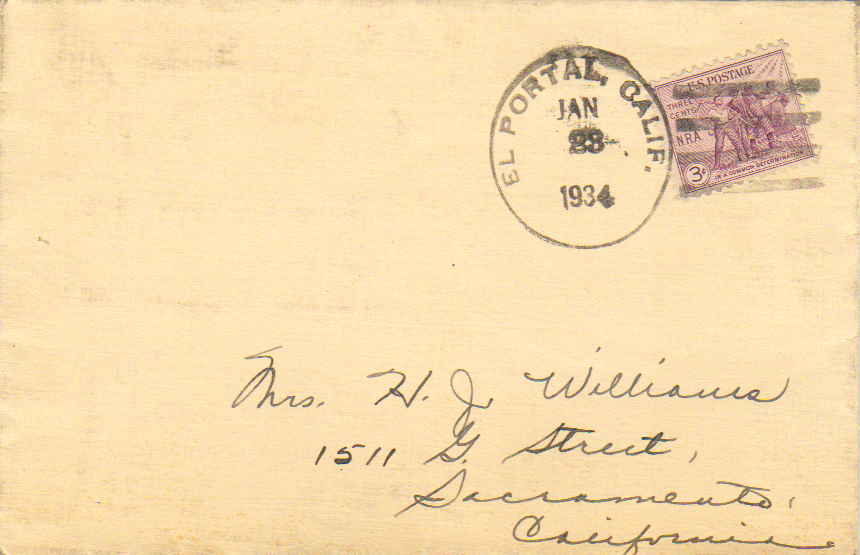 EL PORTAL, CALIF.
JAN
23
1934
U.S. POSTAGE
THREE
CENTS
NRA
3¢
IN A COMMON DETERMINATION
Mrs. H. J. Williams
1511 G. Street,
Sacramento,
California.